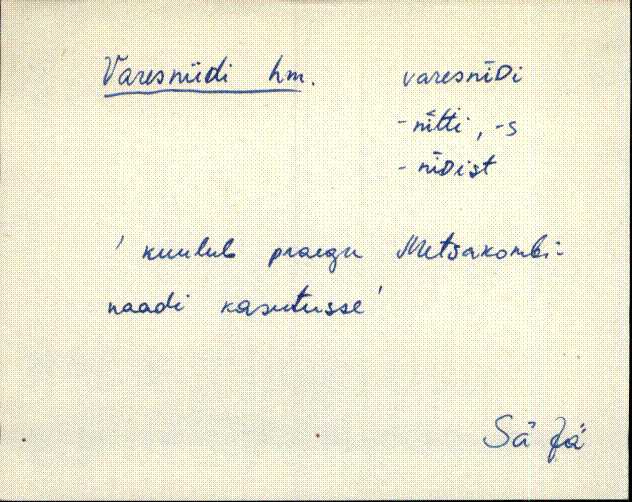 Varesniidi hm. varesnīᴅi
-nītti, -s
-nīᴅist
' kuulub praegu Metsakombi-
naadi kasutusse'
Sä Jä